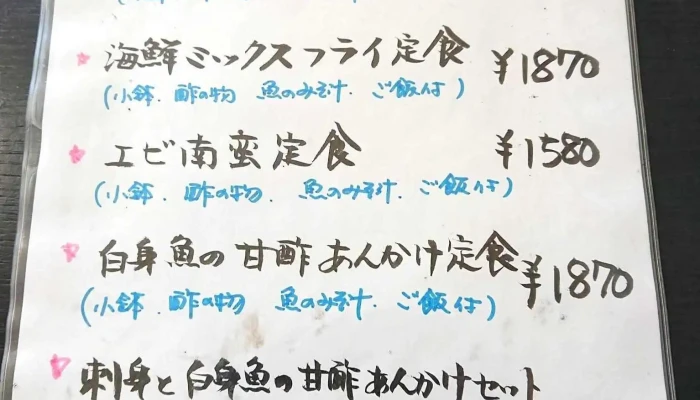 海鮮ミックスフライ定食 ¥1870
(小鉢.酢の物 魚のみそ汁.ご飯付)
エビ南蛮定食 ¥1580
(小鉢.酢の物.魚のみそ汁.ご飯付)
白身魚の甘酢あんかけ定食 ¥1870
(小鉢.酢の物 魚のみそ汁.ご飯付)
刺身と白身魚の甘酢あんかけセット